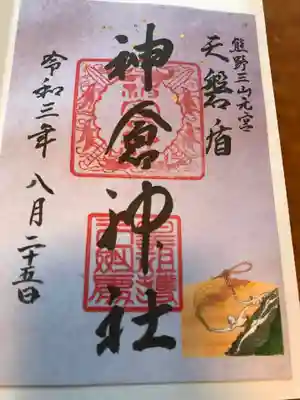 熊野三山元宮
天磐盾
神倉神社
令和三年 八月二十五日